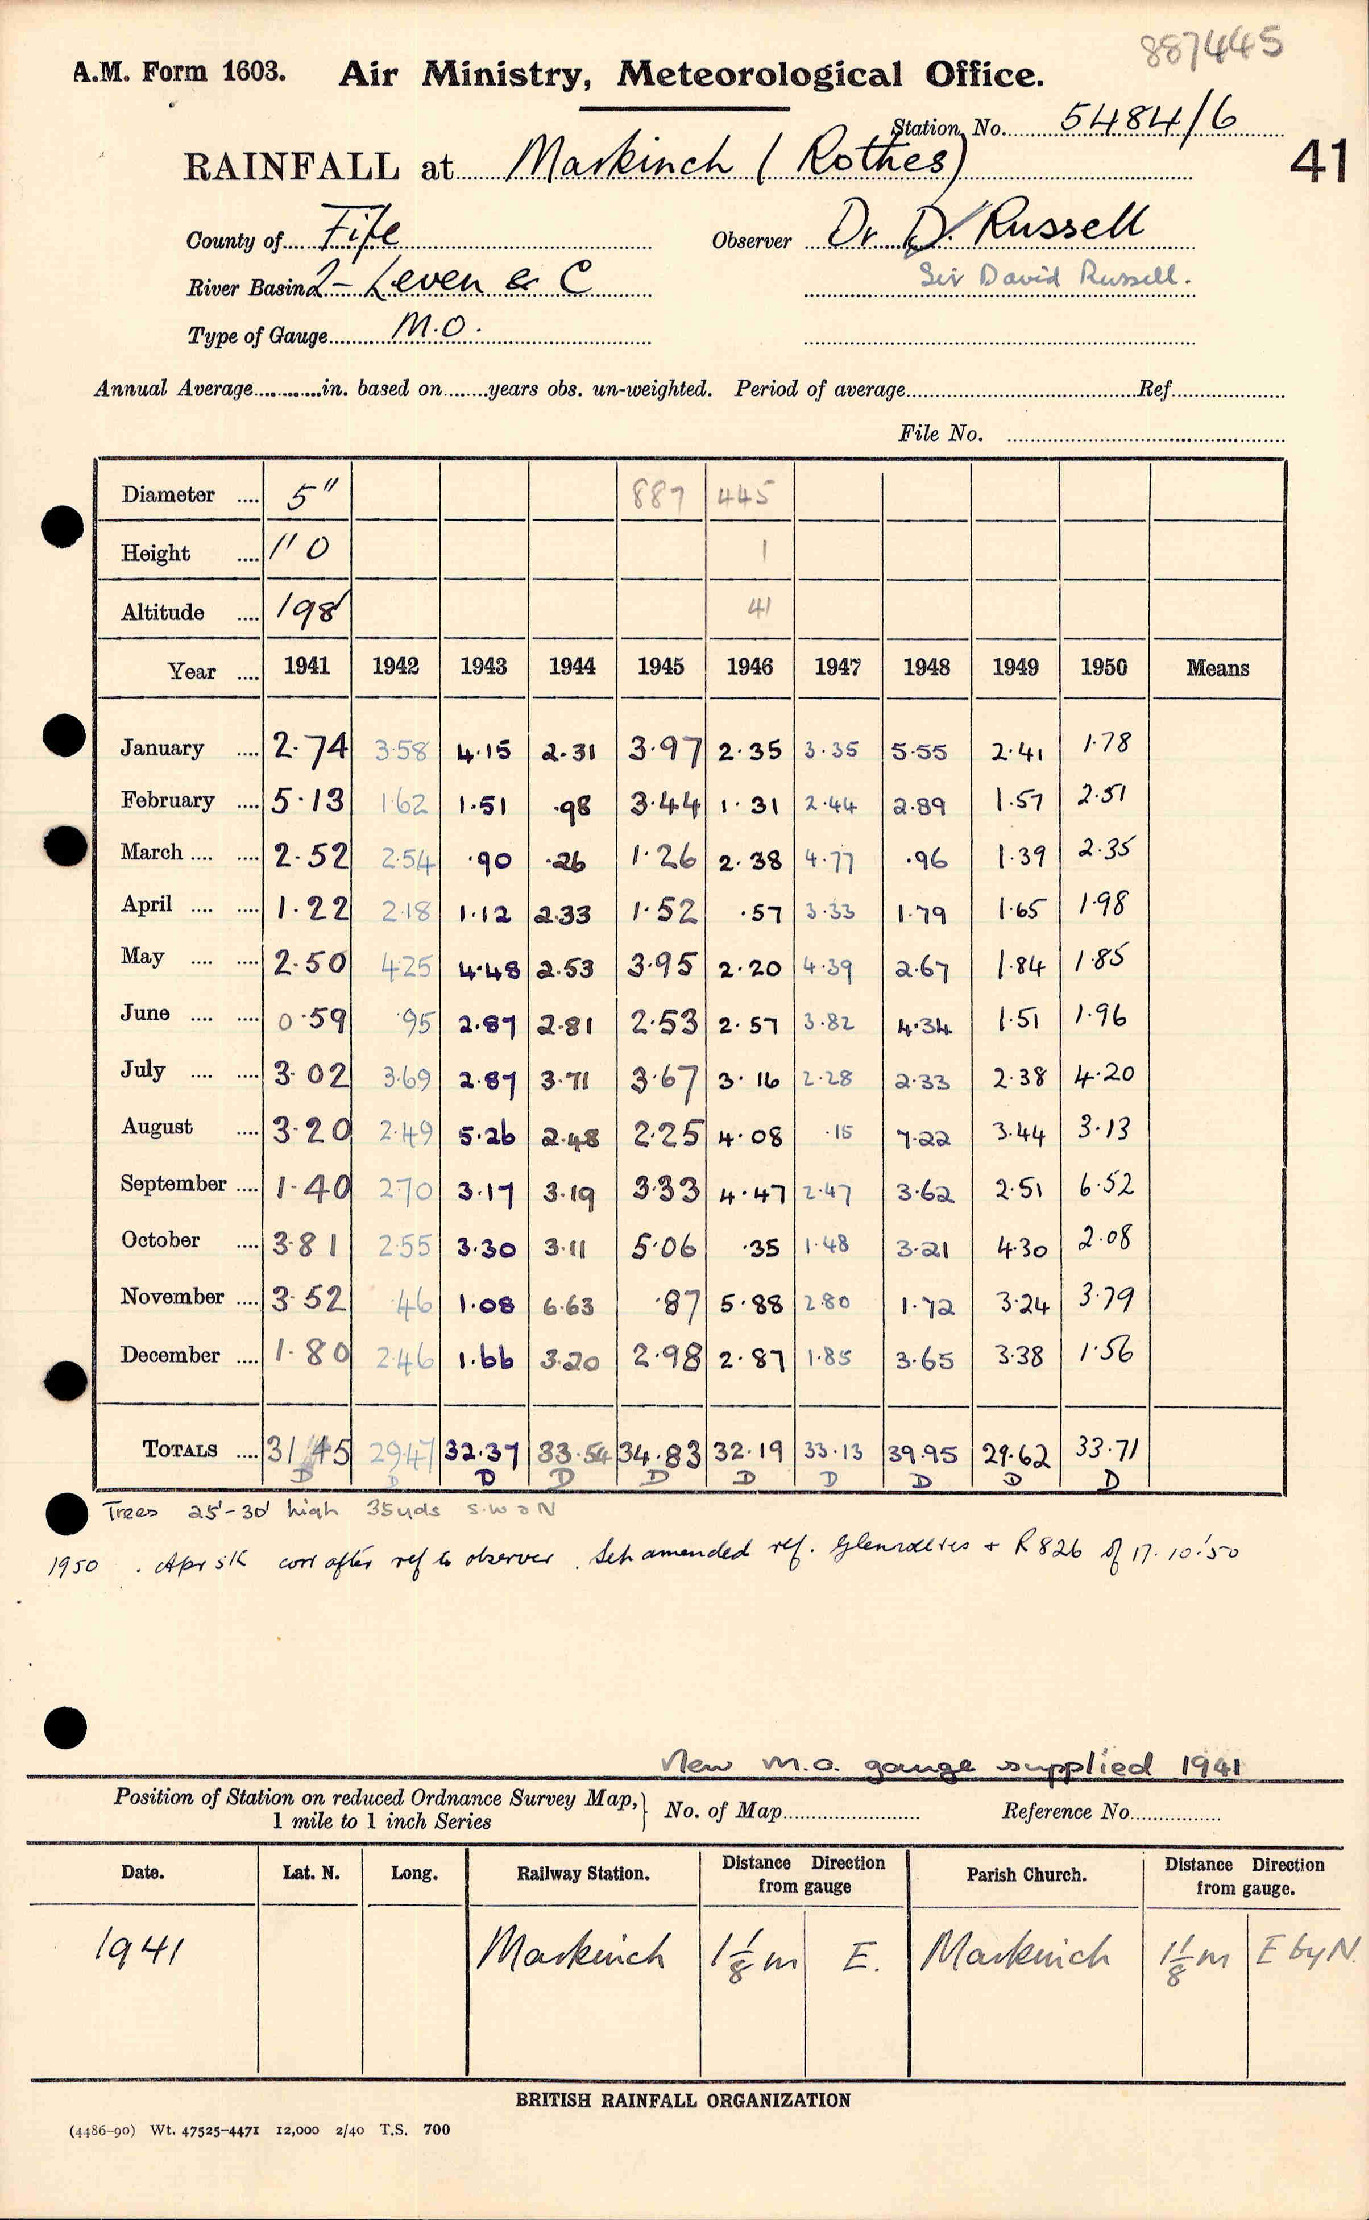 887445
A.M. Form 1603. Air Ministry, Meteorological Office.
Station No. 5484/6
41
RAINFALL at Markinch (Rothes)
County of Fife Observer Dr D. Russell
River Basin 2 - Leven & C Sir David Russell.
Type of Gauge M.O.
Annual Average in. based on years obs. un-weighted. Period of average Ref.
File No.
Diameter 5" 887 445
Height 1' 0 1
Altitude 198' 41
Year 1941 1942 1943 1944 1945 1946 1947 1948 1949 1950 Means
January 2.74 3.58 4.15 2.31 3.97 2.35 3.35 5.55 2.41 1.78
February 5.13 1.62 1.51 .98 3.44 1.31 2.44 2.89 1.57 2.51
March 2.52 2.54 .90 .26 1.26 2.38 4.77 .96 1.39 2.35
April 1.22 2.18 1.12 2.33 1.52 .57 3.33 1.79 1.65 1.98
May 2.50 4.25 4.48 2.53 3.95 2.20 4.39 2.67 1.84 1.85
June 0.59 .95 2.87 2.81 2.53 2.57 3.82 4.34 1.51 1.96
July 3.02 3.69 2.87 3.71 3.67 3.16 2.28 2.33 2.38 4.20
August 3.20 2.49 5.26 2.48 2.25 4.08 .15 7.22 3.44 3.13
September 1.40 2.70 3.17 3.19 3.33 4.47 2.47 3.62 2.51 6.52
October 3.81 2.55 3.30 3.11 5.06 .35 1.48 3.21 4.30 2.08
November 3.52 .46 1.08 6.63 .87 5.88 2.80 1.72 3.24 3.79
December 1.80 2.46 1.66 3.20 2.98 2.87 1.85 3.65 3.38 1.56
TOTALS 31.45 29.47 32.37 33.54 34.83 32.19 33.13 39.95 29.62 33.71
D D D D D D D D D D
Trees 25'-30' high 35yds S.W to N
1950 . Apr corr after ref to observer . Sep amended ref. Glenrothes + R826 of 17.10.'50
New M.O. gauge supplied 1941
Position of Station on reduced Ordnance Survey Map, No. of Map Reference No.
1 mile to 1 inch Series
Date. Lat. N. Long. Railway Station. Distance Direction from gauge Parish Church. Distance Direction from gauge.
1941 Markinch 1⅛ m E. Markinch 1⅛ m E by N.
BRITISH RAINFALL ORGANIZATION
(4486-90) Wt. 47525-4471 12,000 2/40 T.S. 700